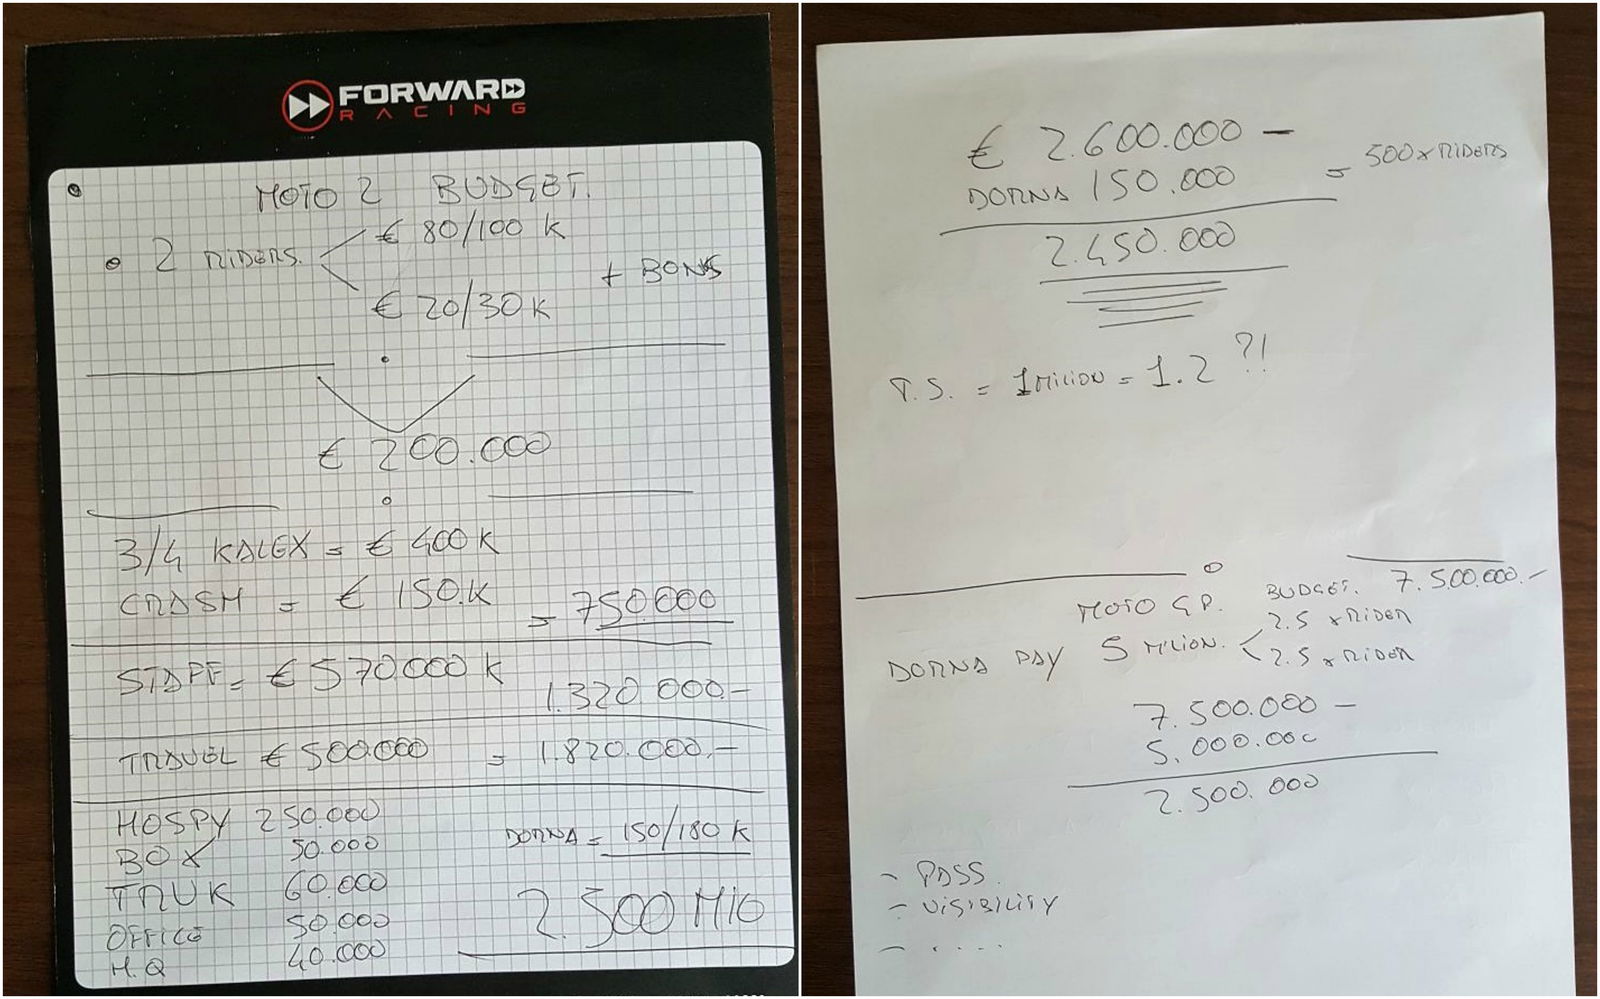 FORWARD
RACING
MOTO 2 BUDGET.
2 RIDERS. € 80/100 K
+ BONUS
€ 20/30 K
€ 200.000
3/4 KALEX = € 400 K
CRASH = € 150.K = 750.000
STAFF = € 570.000 K 1.320.000.-
TRAVEL € 500.000 = 1.820.000.-
HOSPY 250.000
BOX 50.000 DORNA = 150/180 K
TRUK 60.000
OFFICE 50.000 2.500 MIO
H.Q 40.000
€ 2.600.000 -
DORNA 150.000 = 500 x RIDERS
2.450.000
T.S. = 1 MILION = 1.2 ?!
MOTO G.P. BUDGET. 7.500.000.-
DORNA PAY 5 MILION. < 2.5 x RIDER
2.5 x RIDER
7.500.000 -
5.000.000
2.500.000
- PASS.
- VISIBILITY
- . . . .